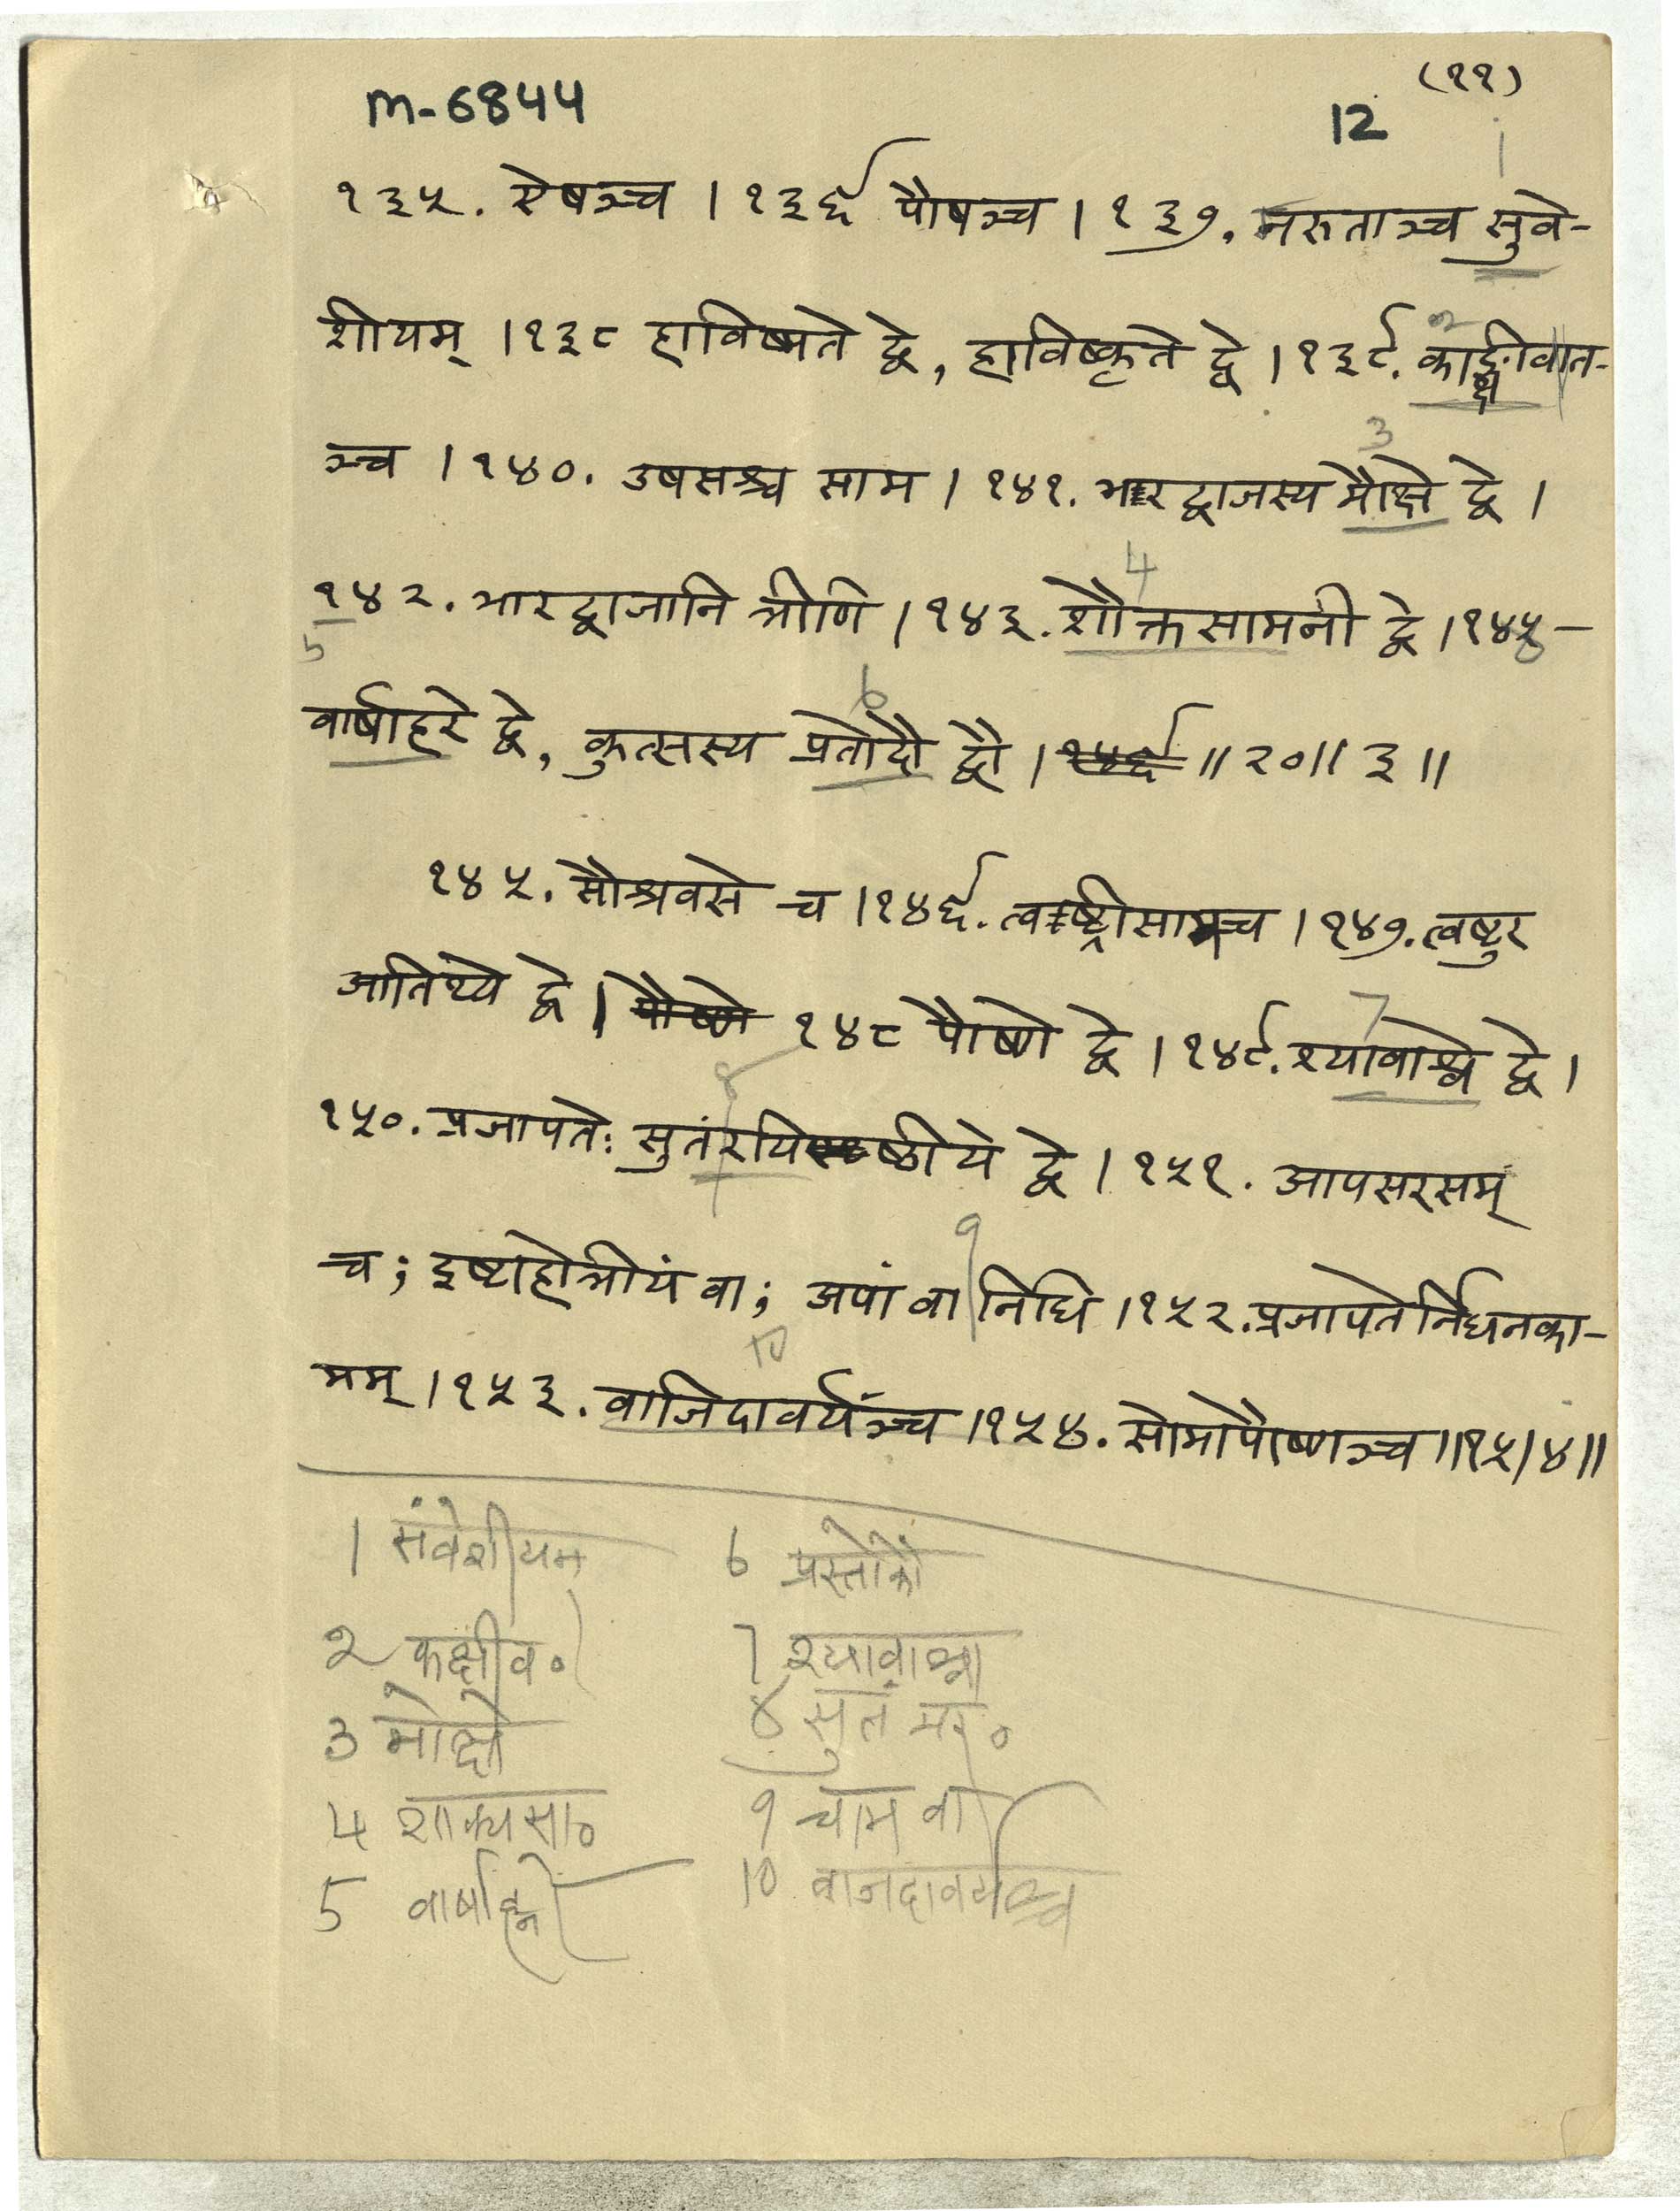 m-6844
(११)
12
१३५. ऐषञ्च । १३६ पौषञ्च । १३७. मरुताञ्च सुवे-
शीयम् । १३८ हाविष्मते द्वे, हाविष्कृते द्वे । १३९. काक्षीवत-
ञ्च । १४०. उषसश्च साम । १४१. भारद्वाजस्य मौक्षे द्वे ।
१४२. भारद्वाजानि त्रीणि । १४३. शौक्तसामनी द्वे । १४४-
वार्षाहरे द्वे, कुत्सस्य प्रतोदौ द्वौ । १४६ ॥ २०॥ ३ ॥
१४५. सौश्रवसे च । १४६. त्वाष्ट्रीसामञ्च । १४७. त्वष्टुर
आतिथ्ये द्वे । पौष्णे १४८ पौष्णे द्वे । १४९. श्यावाश्वे द्वे ।
१५०. प्रजापतेः सुतंरयिष्ठीये द्वे । १५१. आपसरसम्
च; इष्टाहोत्रीयं वा; अपां वा निधि । १५२. प्रजापतेर्निधनका-
मम् । १५३. वाजिदावर्यञ्च । १५४. सोमापौष्णञ्च ॥१५।४॥
1 संवेशीयम्
2 कक्षीव॰
3 मोक्षे
4 शाक्यसा॰
5 वार्षाह्ने
6 प्रस्तोकौ
7 श्यावाश्वा
8 सुतं मर॰
9 चाम वा
10 वाजदावर्यश्च